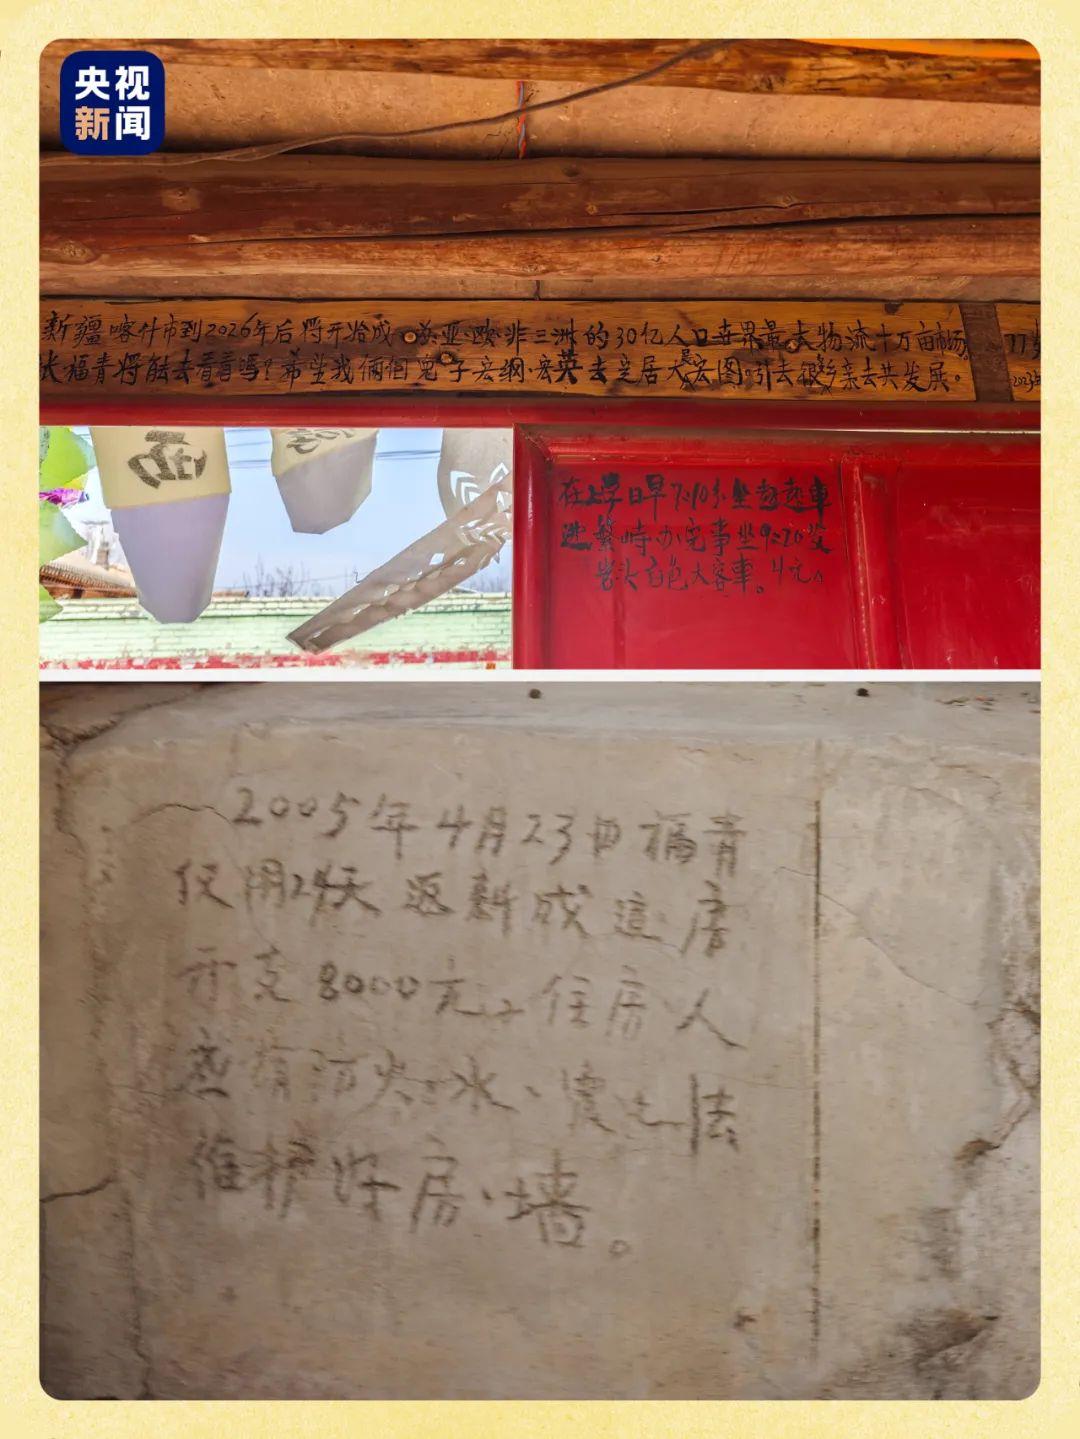 央视
新闻
新疆喀什市到2026年后将开始成为亚、欧、非三洲的30亿人口世界最大物流十万亩场
张福青将能去看看吗？希望我俩個兒子宏纲、宏英去定居大展宏图。引去很多乡亲去共发展。
77岁
2023年
在上学日早7:10多坐
繁峙办完事坐9:20发
岩头白色大客車。4元。
2005年4月23日福青
仅用24天返新成這房
开支8000元。住房人
应有防火、水、震之法
维护好房、墙。